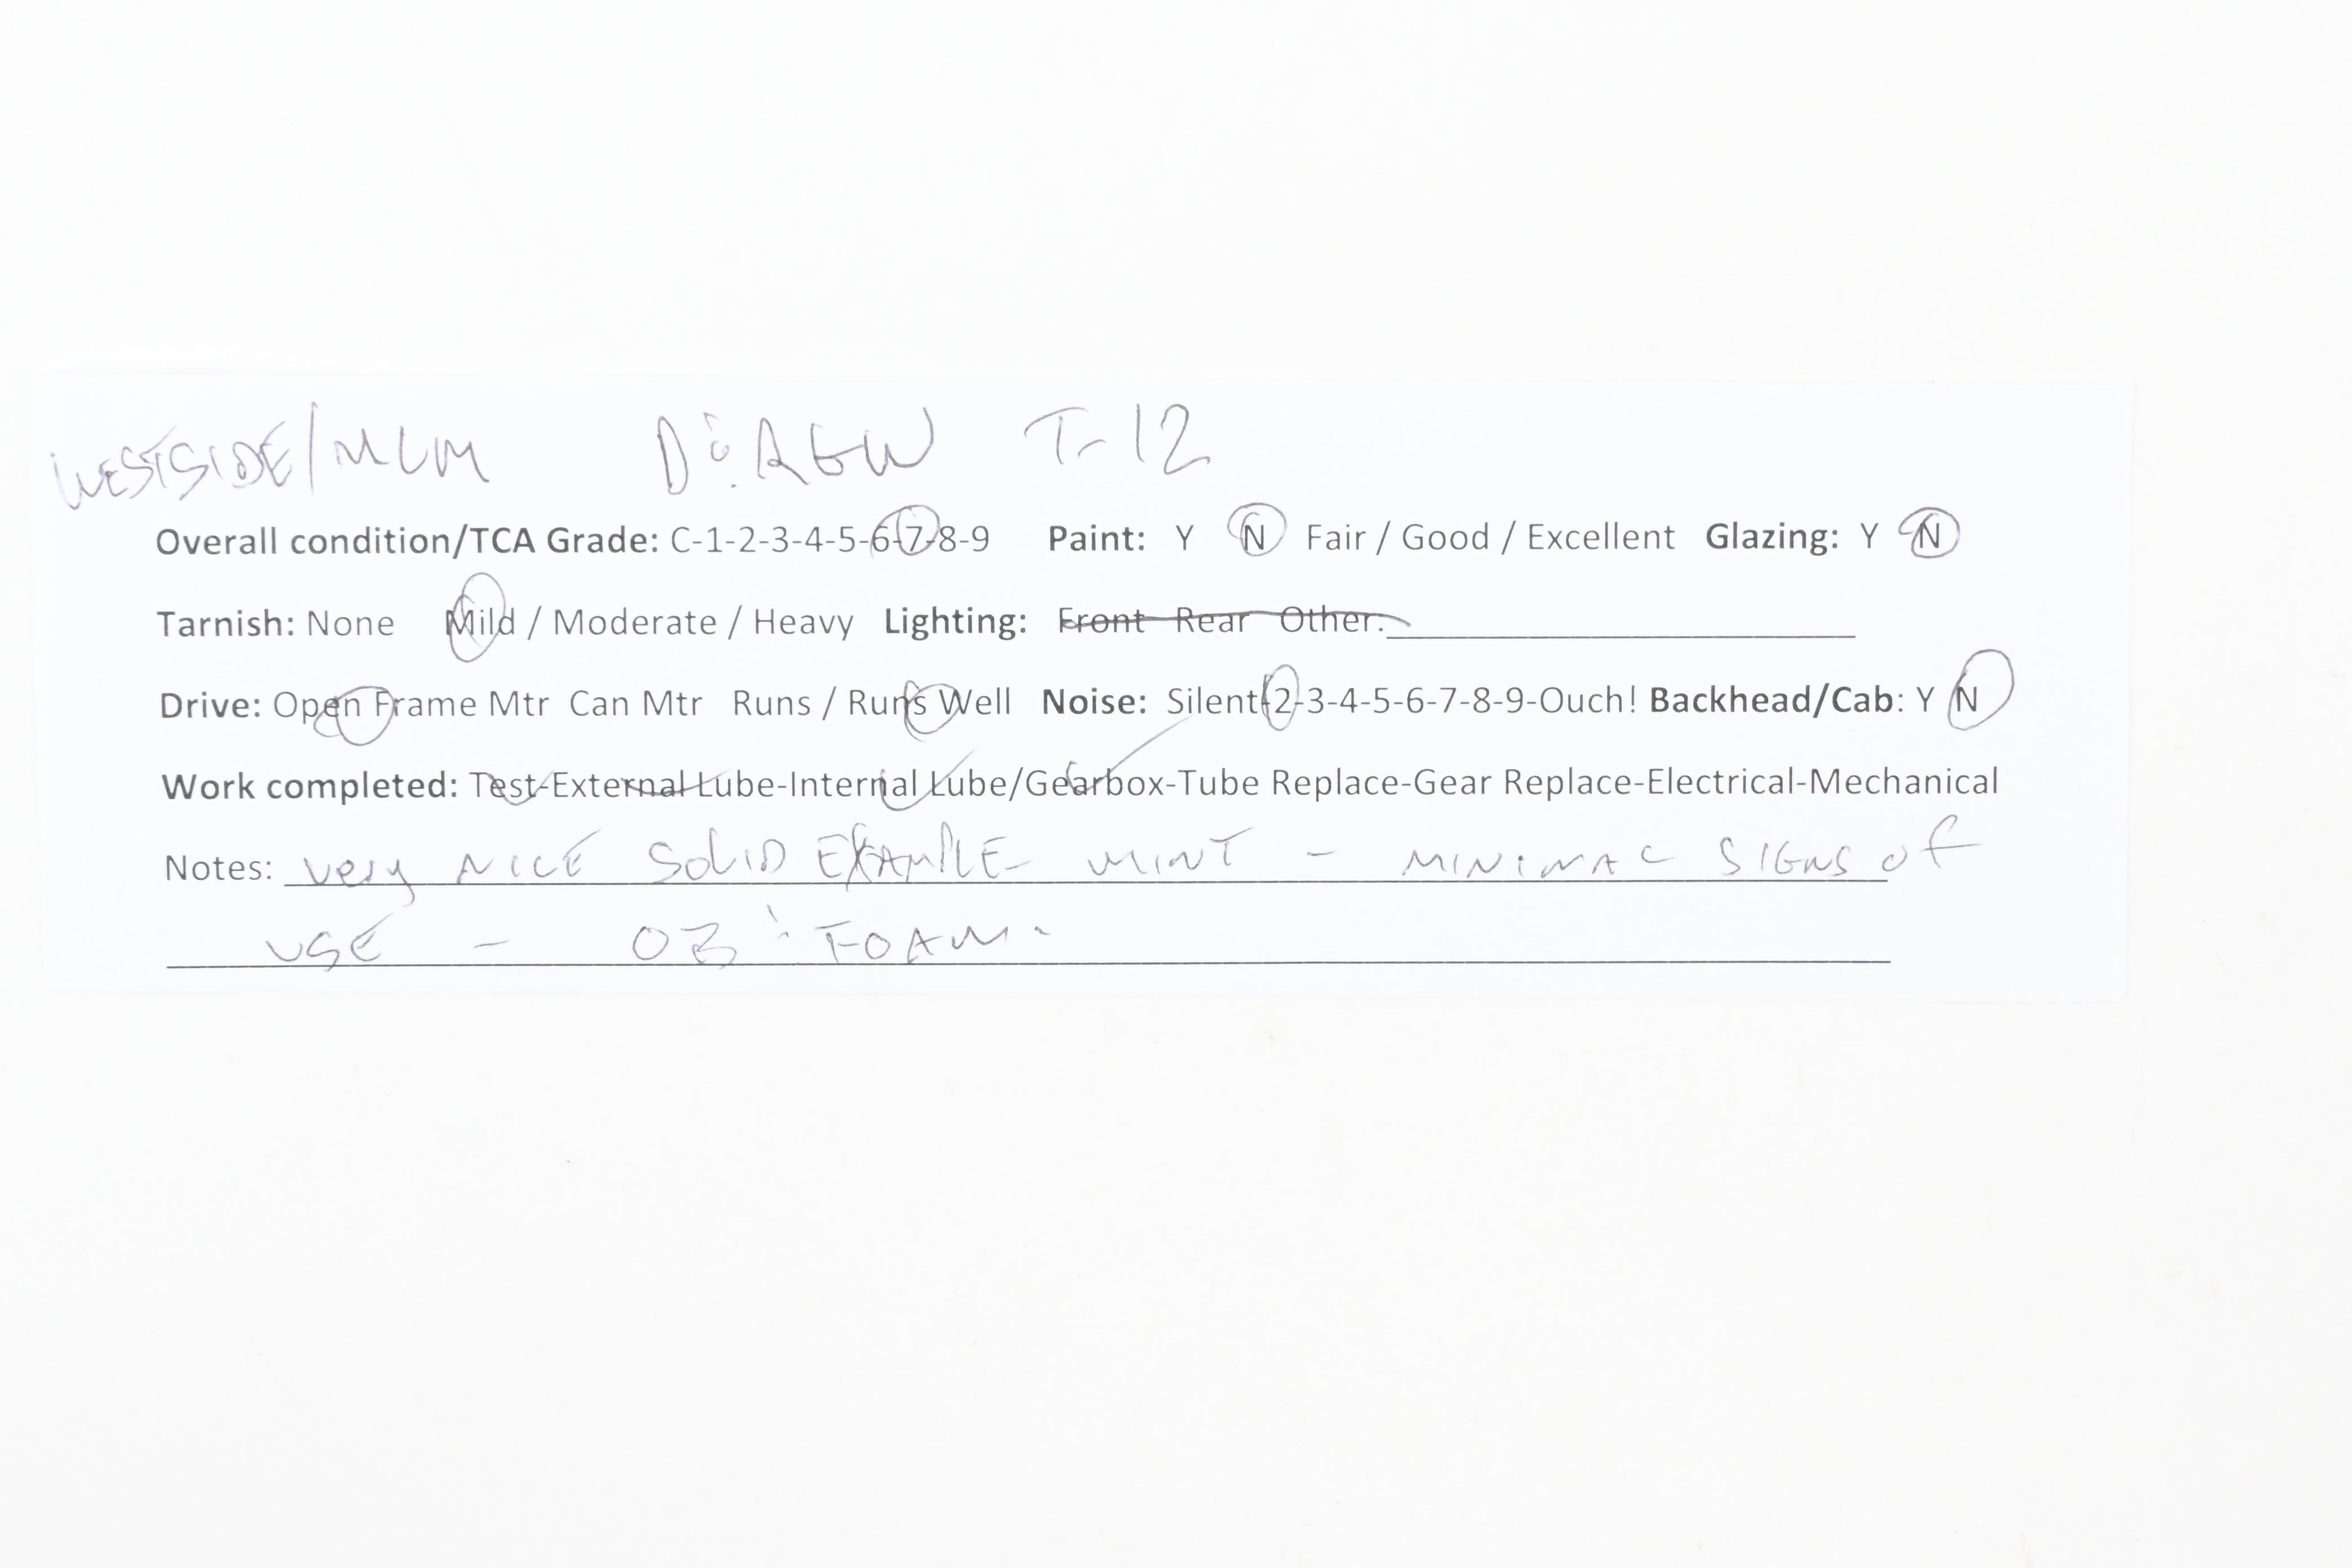 WESTSIDE/MLM D&RGW T-12
Overall condition/TCA Grade: C-1-2-3-4-5-6-7-8-9 Paint: Y N Fair / Good / Excellent Glazing: Y N
Tarnish: None Mild / Moderate / Heavy Lighting: Front Rear Other:
Drive: Open Frame Mtr Can Mtr Runs / Runs Well Noise: Silent-2-3-4-5-6-7-8-9-Ouch! Backhead/Cab: Y N
Work completed: Test-External Lube-Internal Lube/Gearbox-Tube Replace-Gear Replace-Electrical-Mechanical
Notes: very NICE SOLID EXAMPLE - MINT - MINIMAL SIGNS of
USE - OB & FOAM.